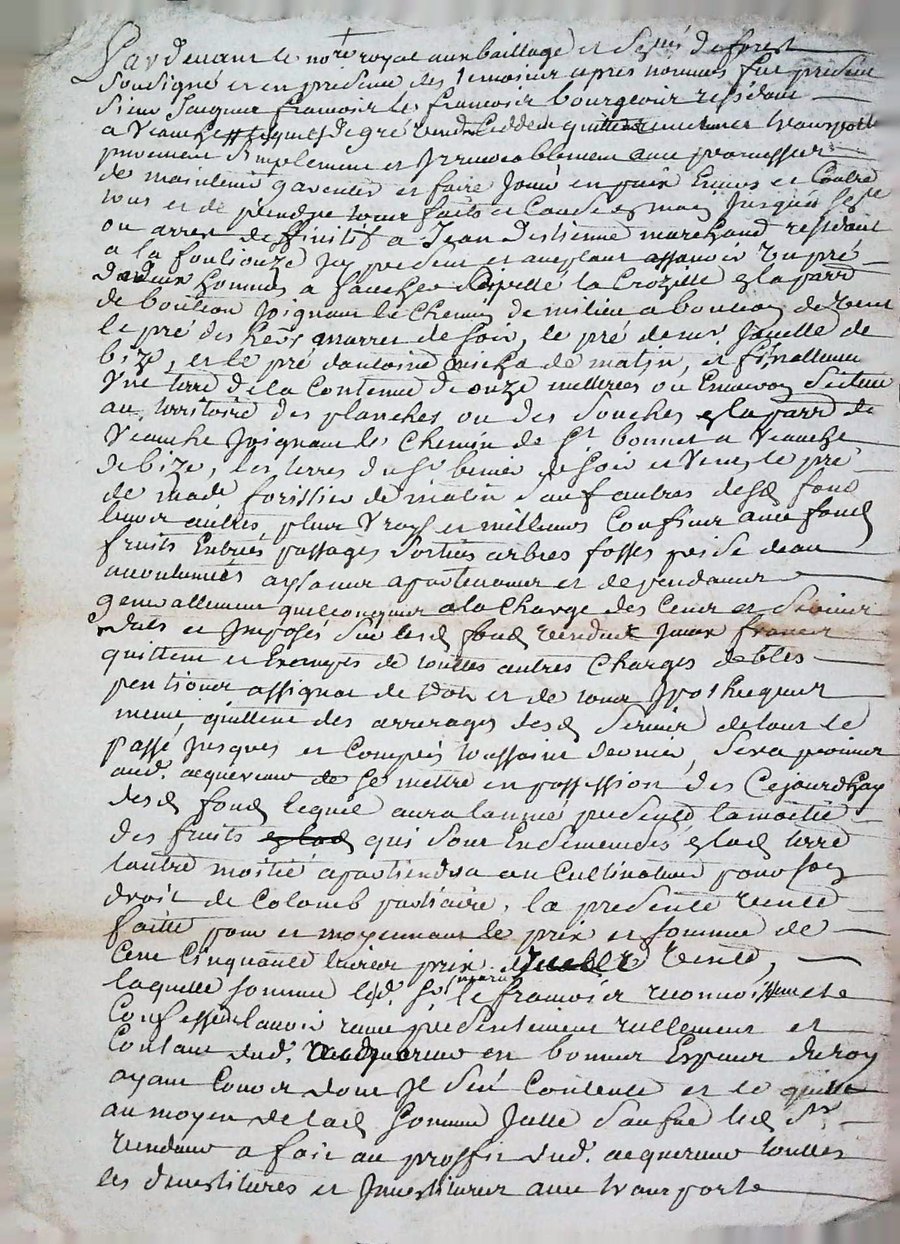 Pardevant le not.re royal aux baillage et Sen.ée de forest
Soussigné et en presence des temoins apres nommés fut present
Sieur Jacques francois le francois bourgeois residant
a Veauche lequel de gré vend cedde quitte remet transporte
purement Simplement et Irrevocablement avec promesse
de maintenir garentir et faire Jouir en paix Envers et Contre
tous et de prendre tous faits et Cause en main Jusques Sent.ce
ou arrest deffinitif a Jean destienne marchand residant
a la fouliouze Icy present et acceptant assavoir un pré
de deux hommes a faucher appellé la Crozille en la parr.
de boutheon Joignant le Chemin de milieu a boutheon de vent
le pré des her.s marret de Soir, le pré de m.r Jouelle de
bize, et le pré dantoine micha de matin, et finallement
Une terre de la Contenue de onze metterées ou Environ Scituée
au territoire des planches ou des Souches en la parr. de
Veauche Joignant le Chemin de S.t bonnet a Veauche
de bize, les terres du S.r bernié de Soir et Vent, le pré
de mad.e forissier de matin Sauf autres desd. fond
leurs autres plus vrays et meilleurs Confins avec fond
fruits Entrées passages Sorties arbres fosses prise deau
accoutumées aysances apartenances et dependances
generallement quelconques a la Charge des Cens et Servis
dues et Imposés Sur lesd. fond vendus Jceux francs
quittes et Exempts de touttes autres Charges debtes
pentions assignat de dot et de tous Ipotheques
meme quittes des arrerages desd. Servis de tout le
passé Jusques et Compris toussaint dernier, Sera permis
aud. acquereur de Se mettre en possession des Cejourdhuy
desd. fond lequel aura lannée presente la moitié
des fruits qui Sont Ensemencés en lad. terre
lautre moitié apartiendra au Cultivateur pour Son
droit de Colomb partiaire, la presente vente
faitte pour et moyennant le prix et Somme de
Cent Cinquante livres prix de vente,
laquelle Somme led. S.r le francois reconnoit et
Confesse lavoir reçue presentement reellement et
Contant dud. acquereur en bonnes Especes du roy
ayant Cours dont Il Sest Contenté et le quitte
au moyen de lad. Somme Jcelle Sauf led. S.r
vendeur a fait au proffit dud. acquereur touttes
les devestitures et Jnvestitures avec transporte